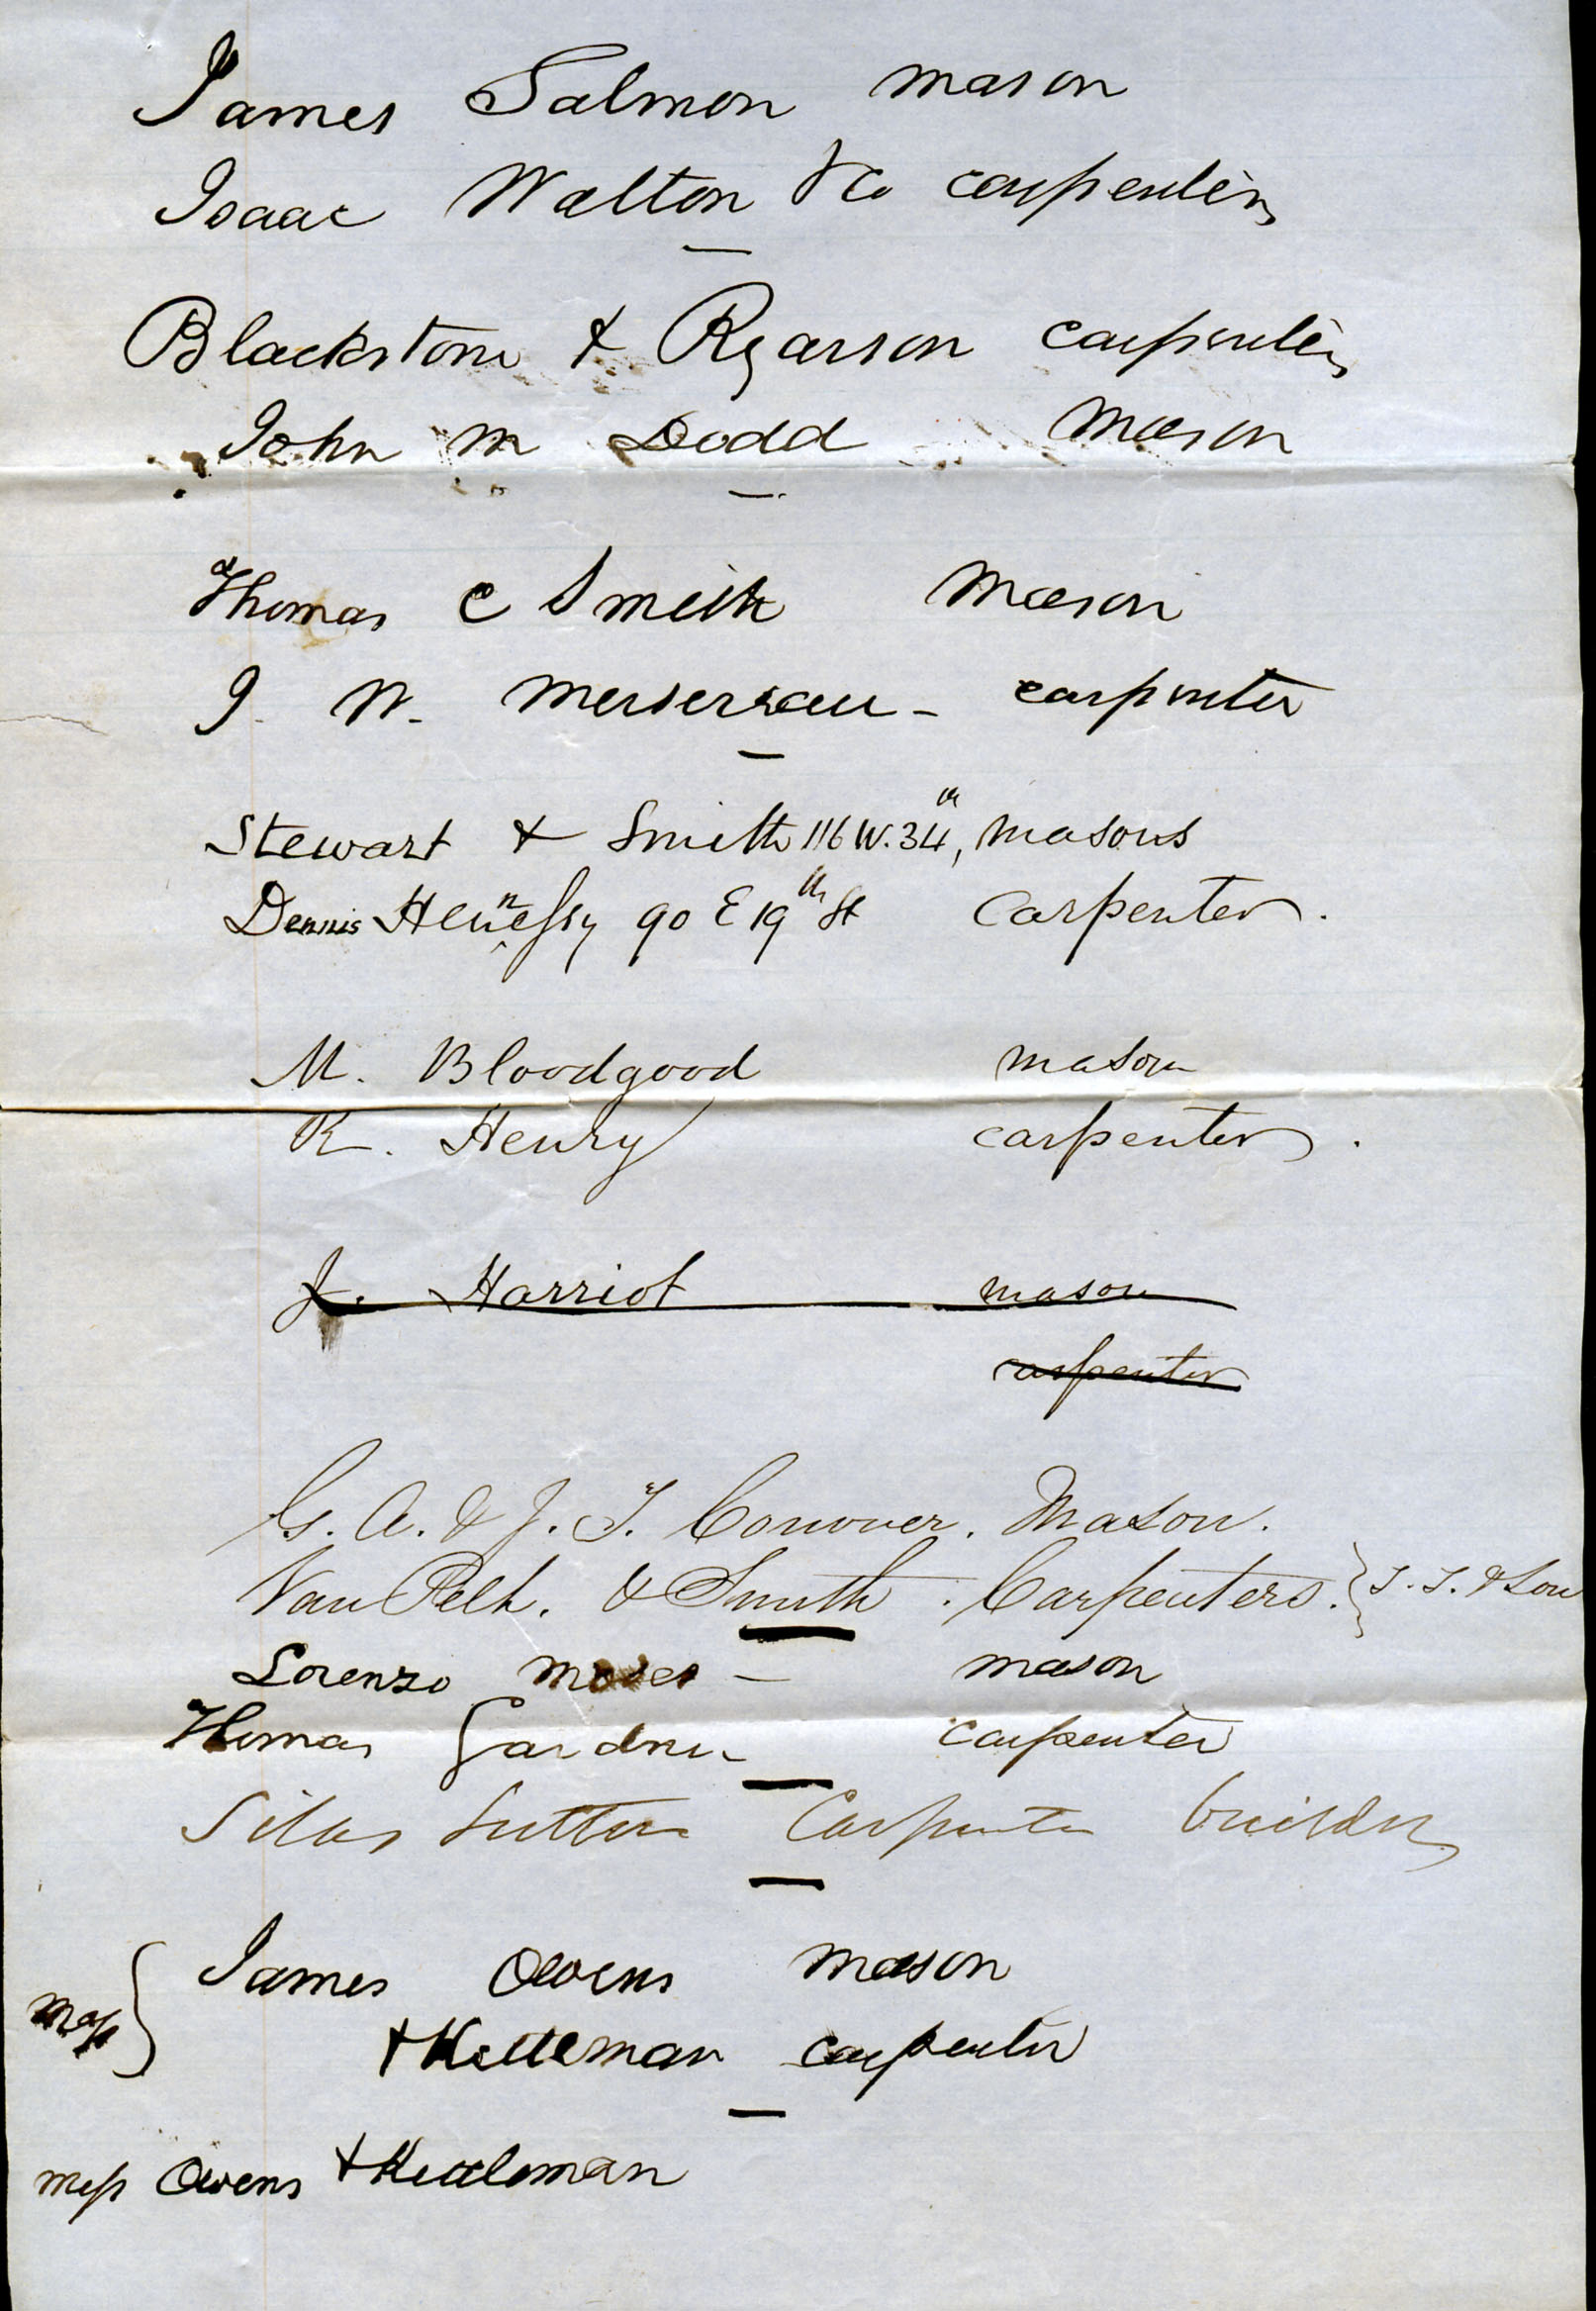 James Salmon mason
Isaac Walton & Co carpenters
Blackstone & Ryarson carpenters
John M Dodd Mason
Thomas C Smith Mason
J. W. Mersereau - carpenter
Stewart & Smith 116 W. 34th, masons
Dennis Hennessy 90 E 19th St Carpenter.
M. Bloodgood mason
R. Henry carpenter.
J. Harriot mason
carpenter
G. A. & J. T. Conover. Mason.
Van Pelt. & Smith. Carpenters. } & Son
Lorenzo Moses - mason
Thomas Gardner carpenter
Silas Sutton Carpenter builder
James Owens mason
& Kettleman carpenter
Mess Owens & Kettleman